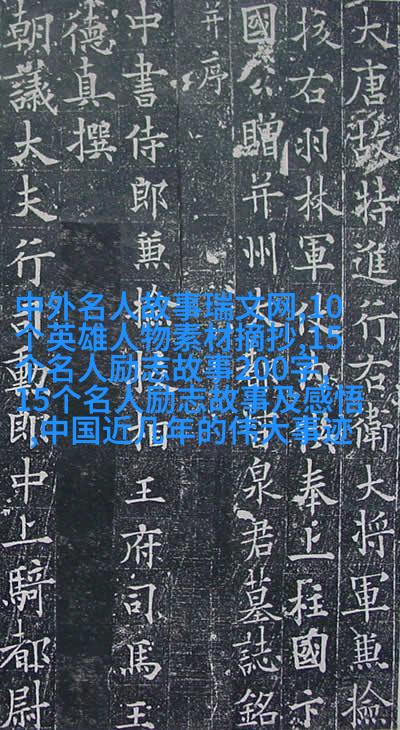 大唐故特進行右衛大將軍兼撿
校右羽林軍仗內供奉上柱國卞
國公贈并州大都督泉君墓誌銘
并序
中書侍郎兼撿校相王府司馬王
德真撰
朝議大夫行司勳郎中上騎都尉
中外名人故事瑞文网,10
个英雄人物素材摘抄,15
个名人励志故事200字,
15个名人励志故事及感悟
,中国近几年的伟大事迹